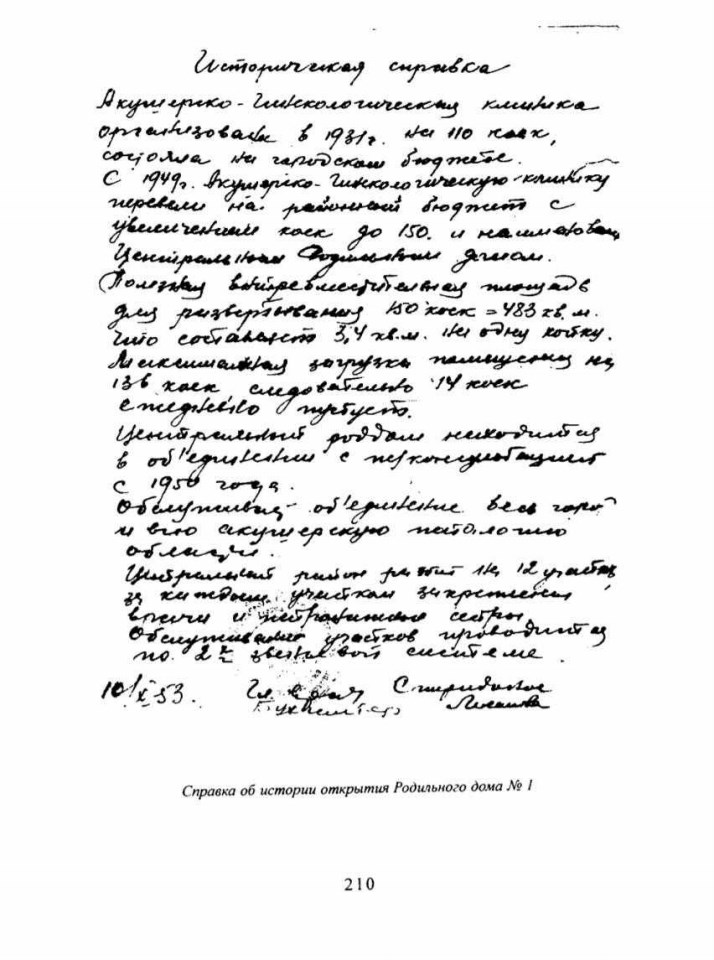 Историческая справка
Акушерско-Гинекологическая клиника
организована в 1931г. на 110 коек,
состояла на городском бюджете.
С 1949г. Акушерско-Гинекологическую клинику
перевели на районный бюджет с
увеличением коек до 150. и наименован
Центральным Родильным домом.
(Полезная площадь
для развертывания 150 коек = 483 кв. м.
Что составляет 3,4 кв.м. на одну койку.
Максимальная загрузка на
136 коек следовательно 14 коек
ежедневно пустует.
Центральный роддом находится
в об'единении с
с 1950 года.
Обслуживает об'единение весь город
и всю акушерскую патологию
области.
Центральный район разбит на 12 участков
за каждым участком закреплены
врачи и патронажные сестры.
Обслуживание участков проводится
по 2х звеньевой системе.
10/X 53. Гл врач Спиридонов
Бухгалтер
Справка об истории открытия Родильного дома № 1
210